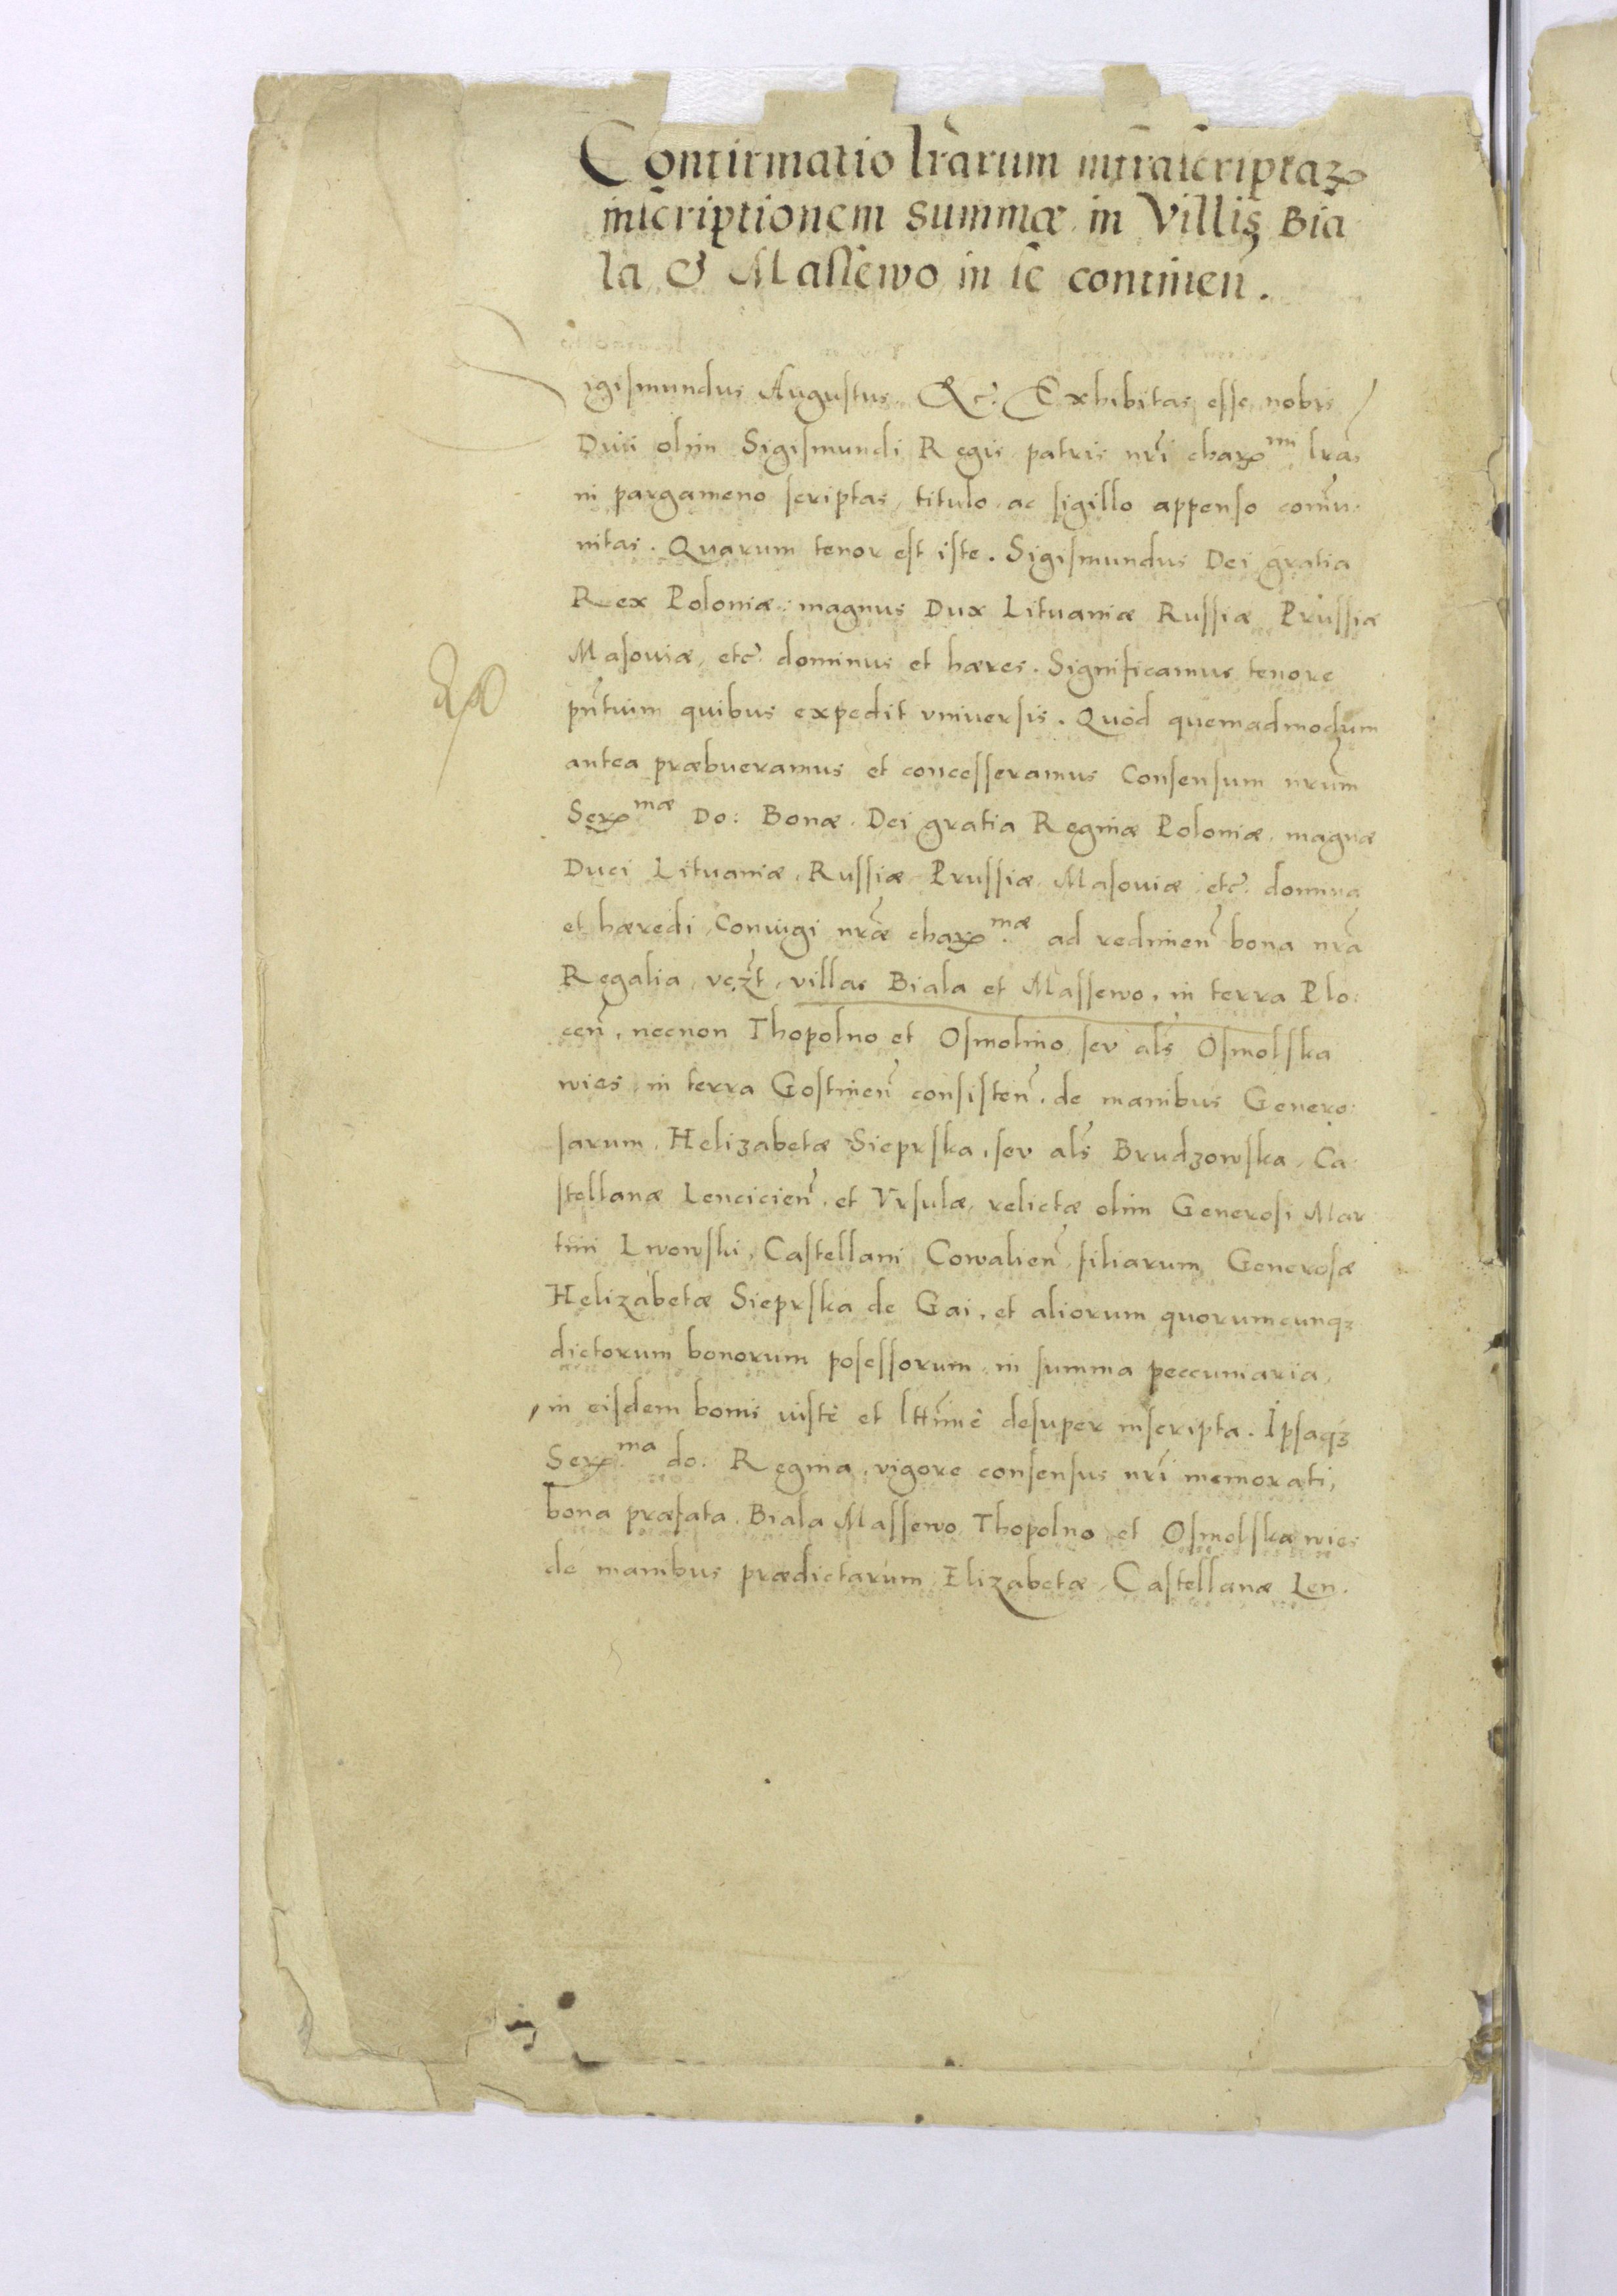 Confirmatio lr̃arum infrascriptaꝝ
inscriptionem summæ in Villis Bia
la & Massewo in se continen̄.
igismundus Augustus &c̃. Exhibitas esse nobis
Diui olim Sigismundi Regis patris nr̃i chaꝝmi lr̃as
in pargameno scriptas, titulo ac sigillo appenso com̄u-
nitas. Quarum tenor est iste. Sigismundus Dei gratia
Rex Poloniæ, magnus Dux Lituaniæ Russiæ Prussiæ
Masouiæ, etc̃. dominus et hæres. Significamus tenore
pñtium quibus expedit vniuersis. Quòd quemadmodum
antea præbueramus et concesseramus Consensum nr̃um
Seꝝmæ Do: Bonæ Dei gratia Reginæ Poloniæ, magnæ
Duci Lituaniæ, Russiæ Prussiæ Masouiæ etc̃. domina
et hæredi, Coniugi nr̃æ chaꝝmæ ad redimen̄ bona nr̃a
Regalia, vcꝫt, villas Biala et Massewo, in terra Plo:
cen̄, necnon Thopolno et Osmolino seu al̃s Osmolska
wies in terra Gostinen̄ consisten̄, de manibus Genero:
sarum Helizabetæ Sieprska, seu al̃s Brudzowska, Ca
stellanæ Lencicien̄, et Vrsulæ, relictæ olim Generosi Mar
tini Lwowski, Castellani Cowalien̄ filiarum Generosæ
Helizabetæ Sieprska de Gai, et aliorum quorumcunqꝫ
dictorum bonorum possessorum in summa peccuniaria,
in eisdem bonis iustè et lttimè desuper inscripta. Ipsaqꝫ
Seꝝma do: Regina, vigore consensus nr̃i memorati,
bona præfata Biala Massewo Thopolno et Osmolska wies
de manibus prædictarum Elizabetæ, Castellanæ Len.